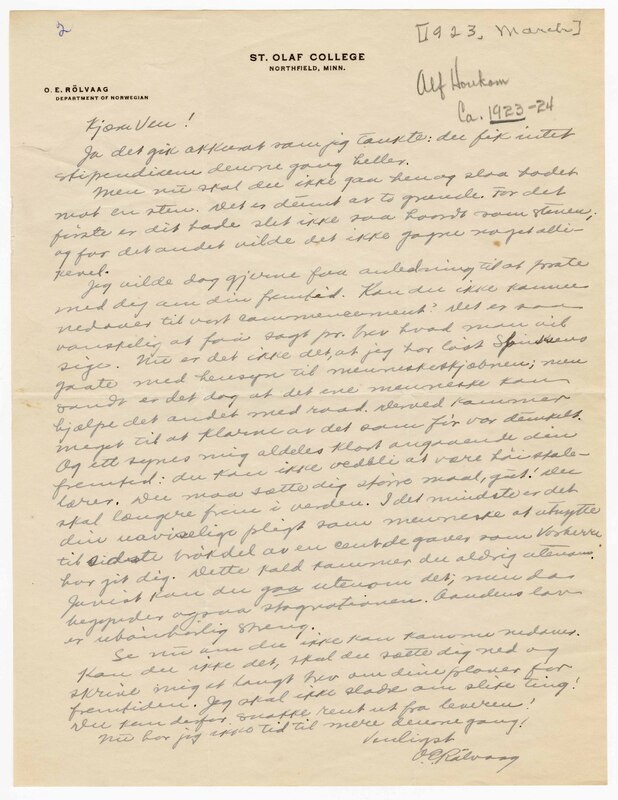 2
[1923, March]
ST. OLAF COLLEGE
NORTHFIELD, MINN.
O. E. RÖLVAAG
DEPARTMENT OF NORWEGIAN
Alf Houkom
Ca. 1923-24
Kjære Ven!
Ja det gik akkurat som jeg tænkte: du fik intet
stipendium denne gang heller.
Men nu skal du ikke gaa hen og slaa hodet
mot en sten. Det er dumt av to grunde. For det
første er dit hode slet ikke saa haardt som stenen,
og for det andet vilde det ikke gagne noget alli-
kevel.
Jeg vilde dog gjerne faa anledning til at prate
med dig om din fremtid. Kan du ikke komme
nedover til vort commencement? Det er saa
vanskelig at faa sagt pr. brev hvad man vil
sige. Nu er det ikke det, at jeg har løst Sfinksens
gaate med hensyn til menneskeskjæbnen; men
sandt er det dog at det ene menneske kan
hjælpe det andet med raad. Derved kommer
meget til at klarne av det som før var dunkelt.
Og ett synes mig aldeles klart angaaende din
fremtid: du kan ikke vedbli at være høiskole-
lærer. Du maa sætte dig større maal, gut! Du
skal længere frem i verden. I det mindste er det
din uaviselige pligt som menneske at utnytte
til sidste brøkdel av en cent de gaver som Vorherre
har git dig. Dette kald kommer du aldrig utenom.
Javist kan du gaa utenom det, men da
begynder ogsaa stagnationen. Aandens lov
er ubønhørlig streng.
Se nu om du ikke kan komme nedover.
Kan du ikke det, skal du sætte dig ned og
skrive mig et langt brev om dine planer for
fremtiden. Jeg skal ikke sladre om slike ting!
Du kan derfor snakke rent ut fra leveren!
Nu har jeg ikke tid til mere denne gang!
Venligst
O.E. Rölvaag